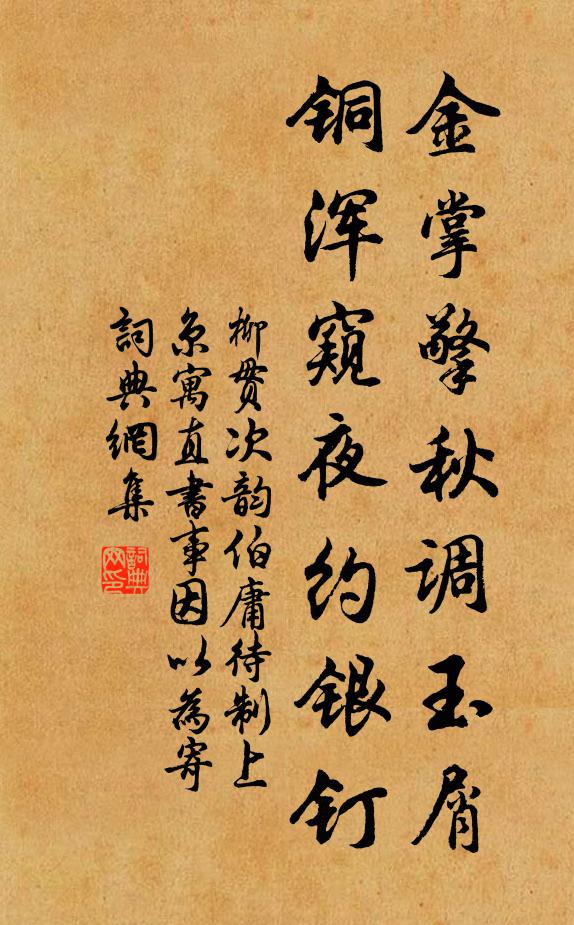 金掌擎秋调玉屑
铜浑窥夜约银钉
柳贯次韵伯庸待制上
京寓直书事因以为寄
詞典網集
詞典網印